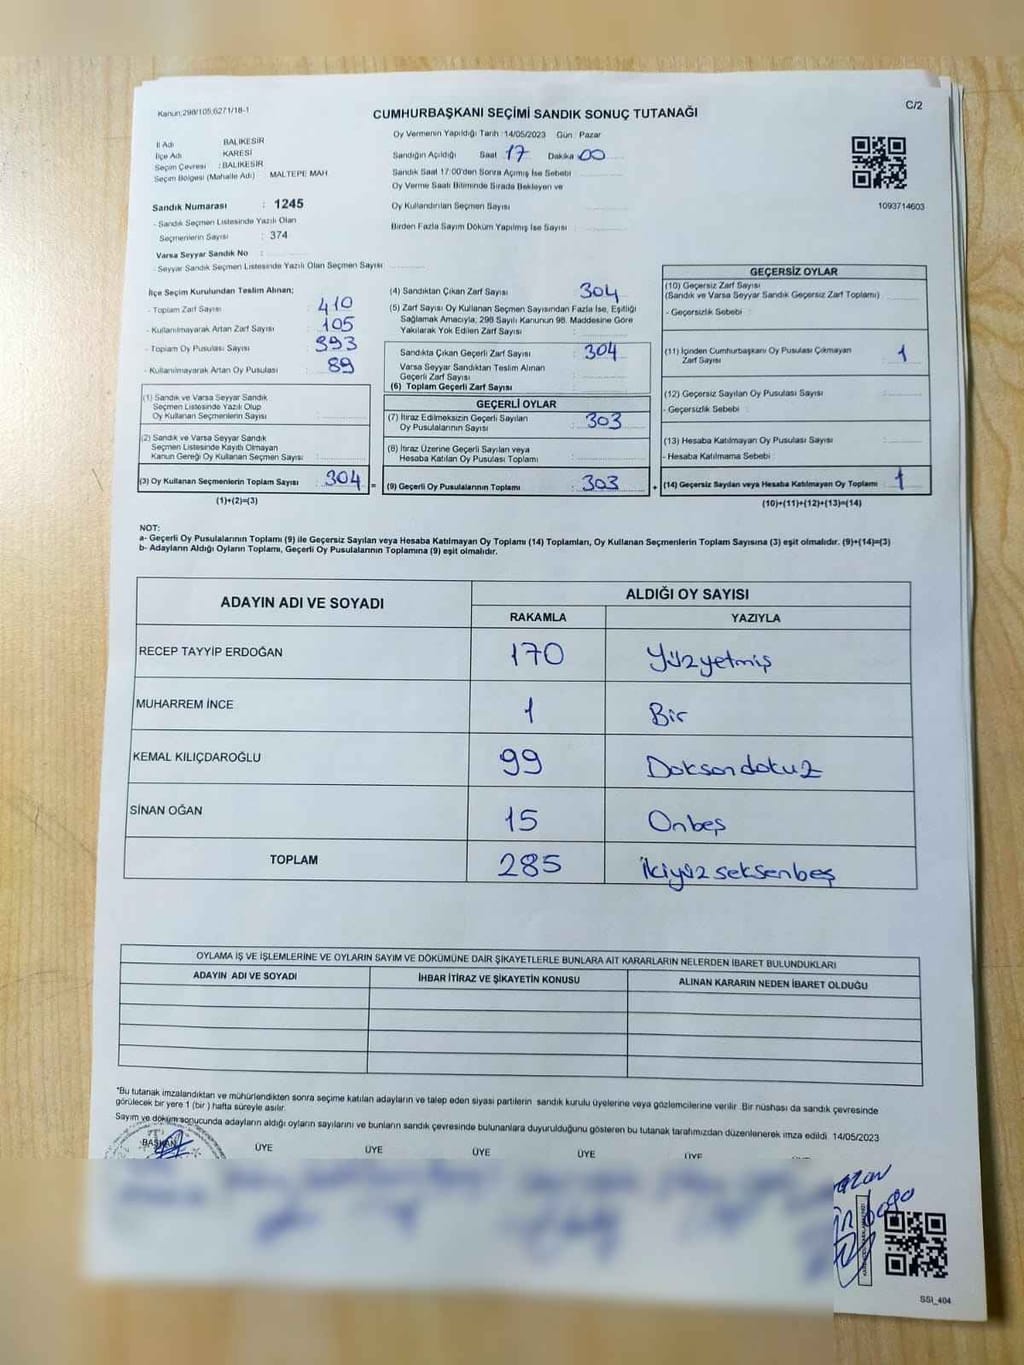 Kanun:298/105,6271/18-1
C/2
CUMHURBAŞKANI SEÇİMİ SANDIK SONUÇ TUTANAĞI
İl Adı BALIKESİR
İlçe Adı KARESİ
Seçim Çevresi : BALIKESİR
Seçim Bölgesi (Mahalle Adı) MALTEPE MAH
Sandık Numarası : 1245
- Sandık Seçmen Listesinde Yazılı Olan
Seçmenlerin Sayısı : 374
Varsa Seyyar Sandık No :
- Seyyar Sandık Seçmen Listesinde Yazılı Olan Seçmen Sayısı
Oy Vermenin Yapıldığı Tarih : 14/05/2023 Gün : Pazar
Sandığın Açıldığı Saat 17 Dakika 00
Sandık Saat 17:00'den Sonra Açılmış İse Sebebi
Oy Verme Saati Bitiminde Sırada Bekleyen ve
Oy Kullandırılan Seçmen Sayısı
Birden Fazla Sayım Döküm Yapılmış İse Sayısı
1093714603
İlçe Seçim Kurulundan Teslim Alınan;
- Toplam Zarf Sayısı : 410
- Kullanılmayarak Artan Zarf Sayısı : 105
- Toplam Oy Pusulası Sayısı : 393
- Kullanılmayarak Artan Oy Pusulası : 89
(1) Sandık ve Varsa Seyyar Sandık
Seçmen Listesinde Yazılı Olup
Oy Kullanan Seçmenlerin Sayısı :
(2) Sandık ve Varsa Seyyar Sandık
Seçmen Listesinde Kayıtlı Olmayan
Kanun Gereği Oy Kullanan Seçmen Sayısı :
(3) Oy Kullanan Seçmenlerin Toplam Sayısı : 304 =
(1)+(2)=(3)
(4) Sandıktan Çıkan Zarf Sayısı : 304
(5) Zarf Sayısı Oy Kullanan Seçmen Sayısından Fazla İse, Eşitliği
Sağlamak Amacıyla, 298 Sayılı Kanunun 98. Maddesine Göre
Yakılarak Yok Edilen Zarf Sayısı :
Sandıkta Çıkan Geçerli Zarf Sayısı : 304
Varsa Seyyar Sandıktan Teslim Alınan
Geçerli Zarf Sayısı :
(6) Toplam Geçerli Zarf Sayısı :
GEÇERLİ OYLAR
(7) İtiraz Edilmeksizin Geçerli Sayılan
Oy Pusulalarının Sayısı : 303
(8) İtiraz Üzerine Geçerli Sayılan veya
Hesaba Katılan Oy Pusulası Toplamı :
(9) Geçerli Oy Pusulalarının Toplamı : 303 +
GEÇERSİZ OYLAR
(10) Geçersiz Zarf Sayısı
(Sandık ve Varsa Seyyar Sandık Geçersiz Zarf Toplamı) :
- Geçersizlik Sebebi :
(11) İçinden Cumhurbaşkanı Oy Pusulası Çıkmayan
Zarf Sayısı : 1
(12) Geçersiz Sayılan Oy Pusulası Sayısı :
- Geçersizlik Sebebi :
(13) Hesaba Katılmayan Oy Pusulası Sayısı :
- Hesaba Katılmama Sebebi :
(14) Geçersiz Sayılan veya Hesaba Katılmayan Oy Toplamı : 1
(10)+(11)+(12)+(13)=(14)
NOT:
a- Geçerli Oy Pusulalarının Toplamı (9) ile Geçersiz Sayılan veya Hesaba Katılmayan Oy Toplamı (14) Toplamları, Oy Kullanan Seçmenlerin Toplam Sayısına (3) eşit olmalıdır. (9)+(14)=(3)
b- Adayların Aldığı Oyların Toplamı, Geçerli Oy Pusulalarının Toplamına (9) eşit olmalıdır.
ADAYIN ADI VE SOYADI ALDIĞI OY SAYISI
RAKAMLA YAZIYLA
RECEP TAYYİP ERDOĞAN 170 Yüzyetmiş
MUHARREM İNCE 1 Bir
KEMAL KILIÇDAROĞLU 99 Doksandokuz
SİNAN OĞAN 15 Onbeş
TOPLAM 285 İkiyüzseksenbeş
OYLAMA İŞ VE İŞLEMLERİNE VE OYLARIN SAYIM VE DÖKÜMÜNE DAİR ŞİKAYETLERLE BUNLARA AİT KARARLARIN NELERDEN İBARET BULUNDUKLARI
ADAYIN ADI VE SOYADI İHBAR İTİRAZ VE ŞİKAYETİN KONUSU ALINAN KARARIN NEDEN İBARET OLDUĞU
*Bu tutanak imzalandıktan ve mühürlendikten sonra seçime katılan adayların ve talep eden siyasi partilerin sandık kurulu üyelerine veya gözlemcilerine verilir. Bir nüshası da sandık çevresinde
görülecek bir yere 1 (bir) hafta süreyle asılır.
Sayım ve döküm sonucunda adayların aldığı oyların sayılarını ve bunların sandık çevresinde bulunanlara duyurulduğunu gösteren bu tutanak tarafımızdan düzenlenerek imza edildi. 14/05/2023
BAŞKAN ÜYE ÜYE ÜYE ÜYE ÜYE
SSI_404